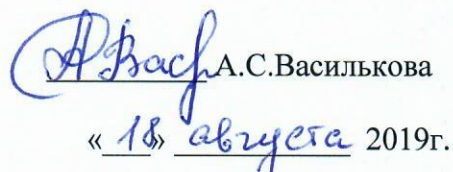 А.С.Василькова
«18» августа 2019г.